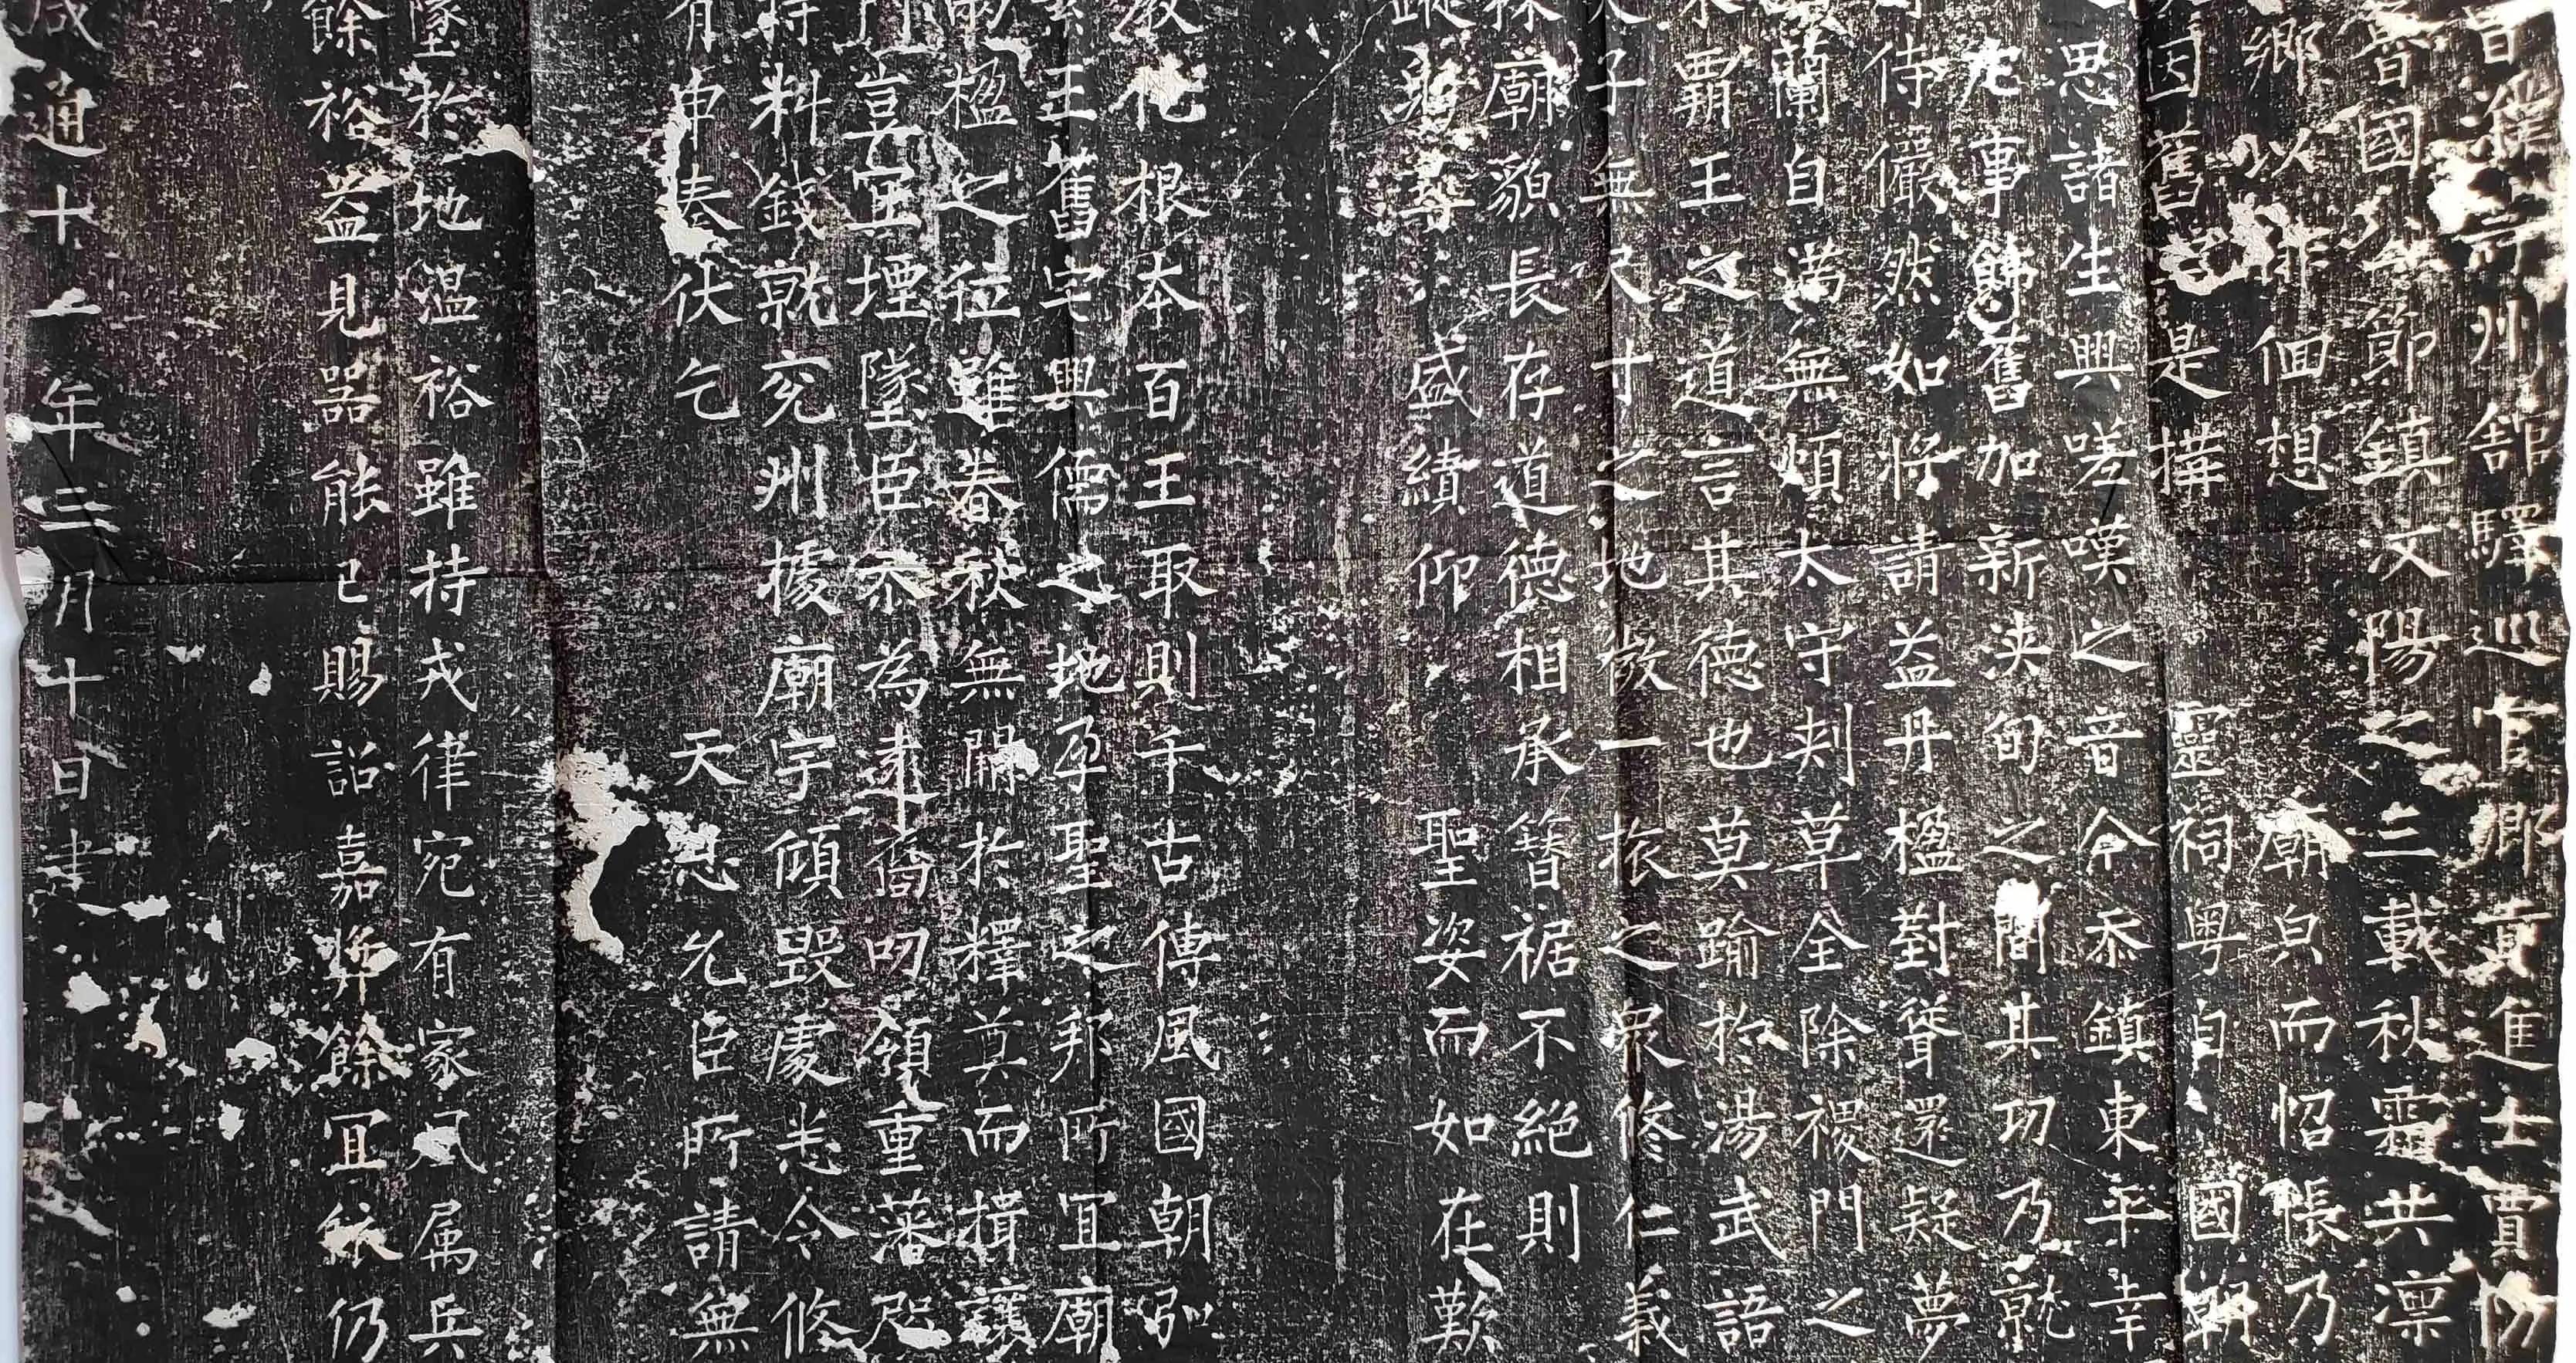 濮等州舘驛巡官鄉貢進士賈防
魯國節鎮汶陽之三載秋霜共凛
鄉以徘佪想廟皃而怊悵乃
因舊是搆靈祠粤自國朝
思諸生興嗟嘆之音今忝鎮東平幸
完事歸舊加新浹旬之間其功乃就
侍儼然如將請益丹楹對聳還疑夢
蘭自滿無煩太守刾草全除禝門之
霸王之道言其德也莫踰於湯武語
子無尺寸之地微一旅之眾修仁義
廟貌長存道德相承簪裾不絕則
蹤尊盛績仰聖姿而如在歎
化根本百王取則千古傳風國朝弘
王舊宅興儒之地孕聖之邦所宜廟
兩楹之位雖春秋無闕於釋奠而揖讓
豈宜堙墜臣忝為遠裔叨領重藩咫
料錢就兖州據廟宇傾毀處悉令修
有申奏伏乞天恩允臣所請無
墜於地溫裕雖持戎律宛有家風属兵
餘裕益見器能已賜詔嘉奬餘宜依仍
咸通十一年三月十日書